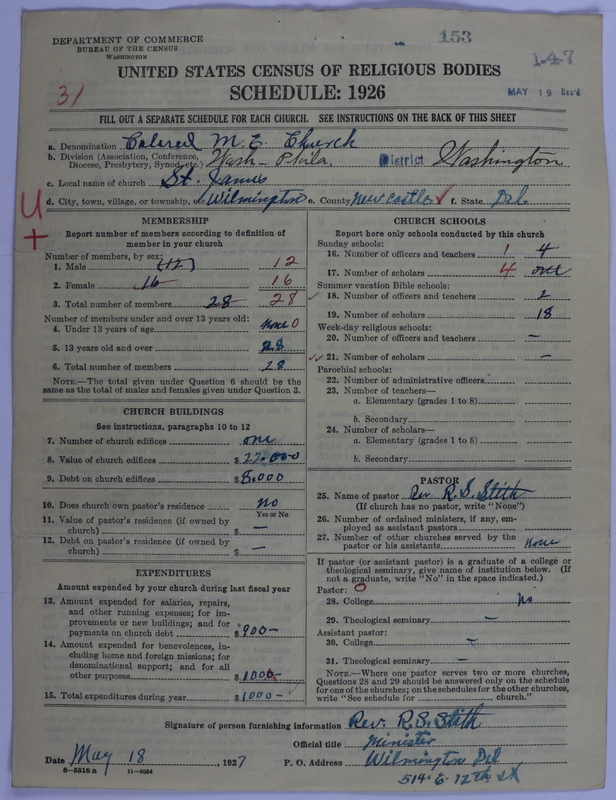 DEPARTMENT OF COMMERCE
BUREAU OF THE CENSUS
WASHINGTON
153
147
UNITED STATES CENSUS OF RELIGIOUS BODIES
SCHEDULE: 1926
31
MAY 19 Rec'd
FILL OUT A SEPARATE SCHEDULE FOR EACH CHURCH. SEE INSTRUCTIONS ON THE BACK OF THIS SHEET
a. Denomination Colored M. E. Church
b. Division (Association, Conference, Diocese, Presbytery, Synod, etc.) Wash - Phila. District Washington
c. Local name of church St. James
d. City, town, village, or township, etc Wilmington e. County New Castle f. State Del.
U
+
MEMBERSHIP
Report number of members according to definition of member in your church
Number of members, by sex:
1. Male (12) 12
2. Female 16 16
3. Total number of members 28 28
Number of members under and over 13 years old:
4. Under 13 years of age none 0
5. 13 years old and over 28
6. Total number of members 28
NOTE.—The total given under Question 6 should be the same as the total of males and females given under Question 3.
CHURCH BUILDINGS
See instructions, paragraphs 10 to 12
7. Number of church edifices one
8. Value of church edifices $ 22.000
9. Debt on church edifices $ 8.000
10. Does church own pastor's residence no
Yes or No
11. Value of pastor's residence (if owned by church) $ —
12. Debt on pastor's residence (if owned by church) $ —
EXPENDITURES
Amount expended by your church during last fiscal year
13. Amount expended for salaries, repairs, and other running expenses; for improvements or new buildings; and for payments on church debt $ 900—
14. Amount expended for benevolences, including home and foreign missions; for denominational support; and for all other purposes $
15. Total expenditures during year $ 1000—
CHURCH SCHOOLS
Report here only schools conducted by this church
Sunday schools:
16. Number of officers and teachers 1 4
17. Number of scholars 4 one
Summer vacation Bible schools:
18. Number of officers and teachers 2
19. Number of scholars 18
Week-day religious schools:
20. Number of officers and teachers —
21. Number of scholars —
Parochial schools:
22. Number of administrative officers
23. Number of teachers—
a. Elementary (grades 1 to 8)
b. Secondary
24. Number of scholars—
a. Elementary (grades 1 to 8)
b. Secondary
PASTOR
25. Name of pastor Rev. R. S. Stith
(If church has no pastor, write "None")
26. Number of ordained ministers, if any, employed as assistant pastors
27. Number of other churches served by the pastor or his assistants none
If pastor (or assistant pastor) is a graduate of a college or theological seminary, give name of institution below. (If not a graduate, write "No" in the space indicated.)
Pastor: O
28. College no
29. Theological seminary —
Assistant pastor:
30. College —
31. Theological seminary —
NOTE.—Where one pastor serves two or more churches, Questions 28 and 29 should be answered only on the schedule for one of the churches; on the schedules for the other churches, write "See schedule for ........ church."
Signature of person furnishing information Rev. R. S. Stith
Official title Minister
Date May 18, 1927 P. O. Address Wilmington Del
514 E 12th St
8-5518a 11-9034